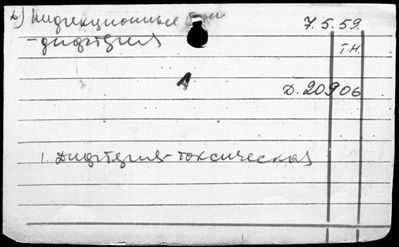 2) Инфекционные б-ни 7.5.59.
- дифтерия Т.Н.
А
Д. 20906
1. Дифтерия токсическая